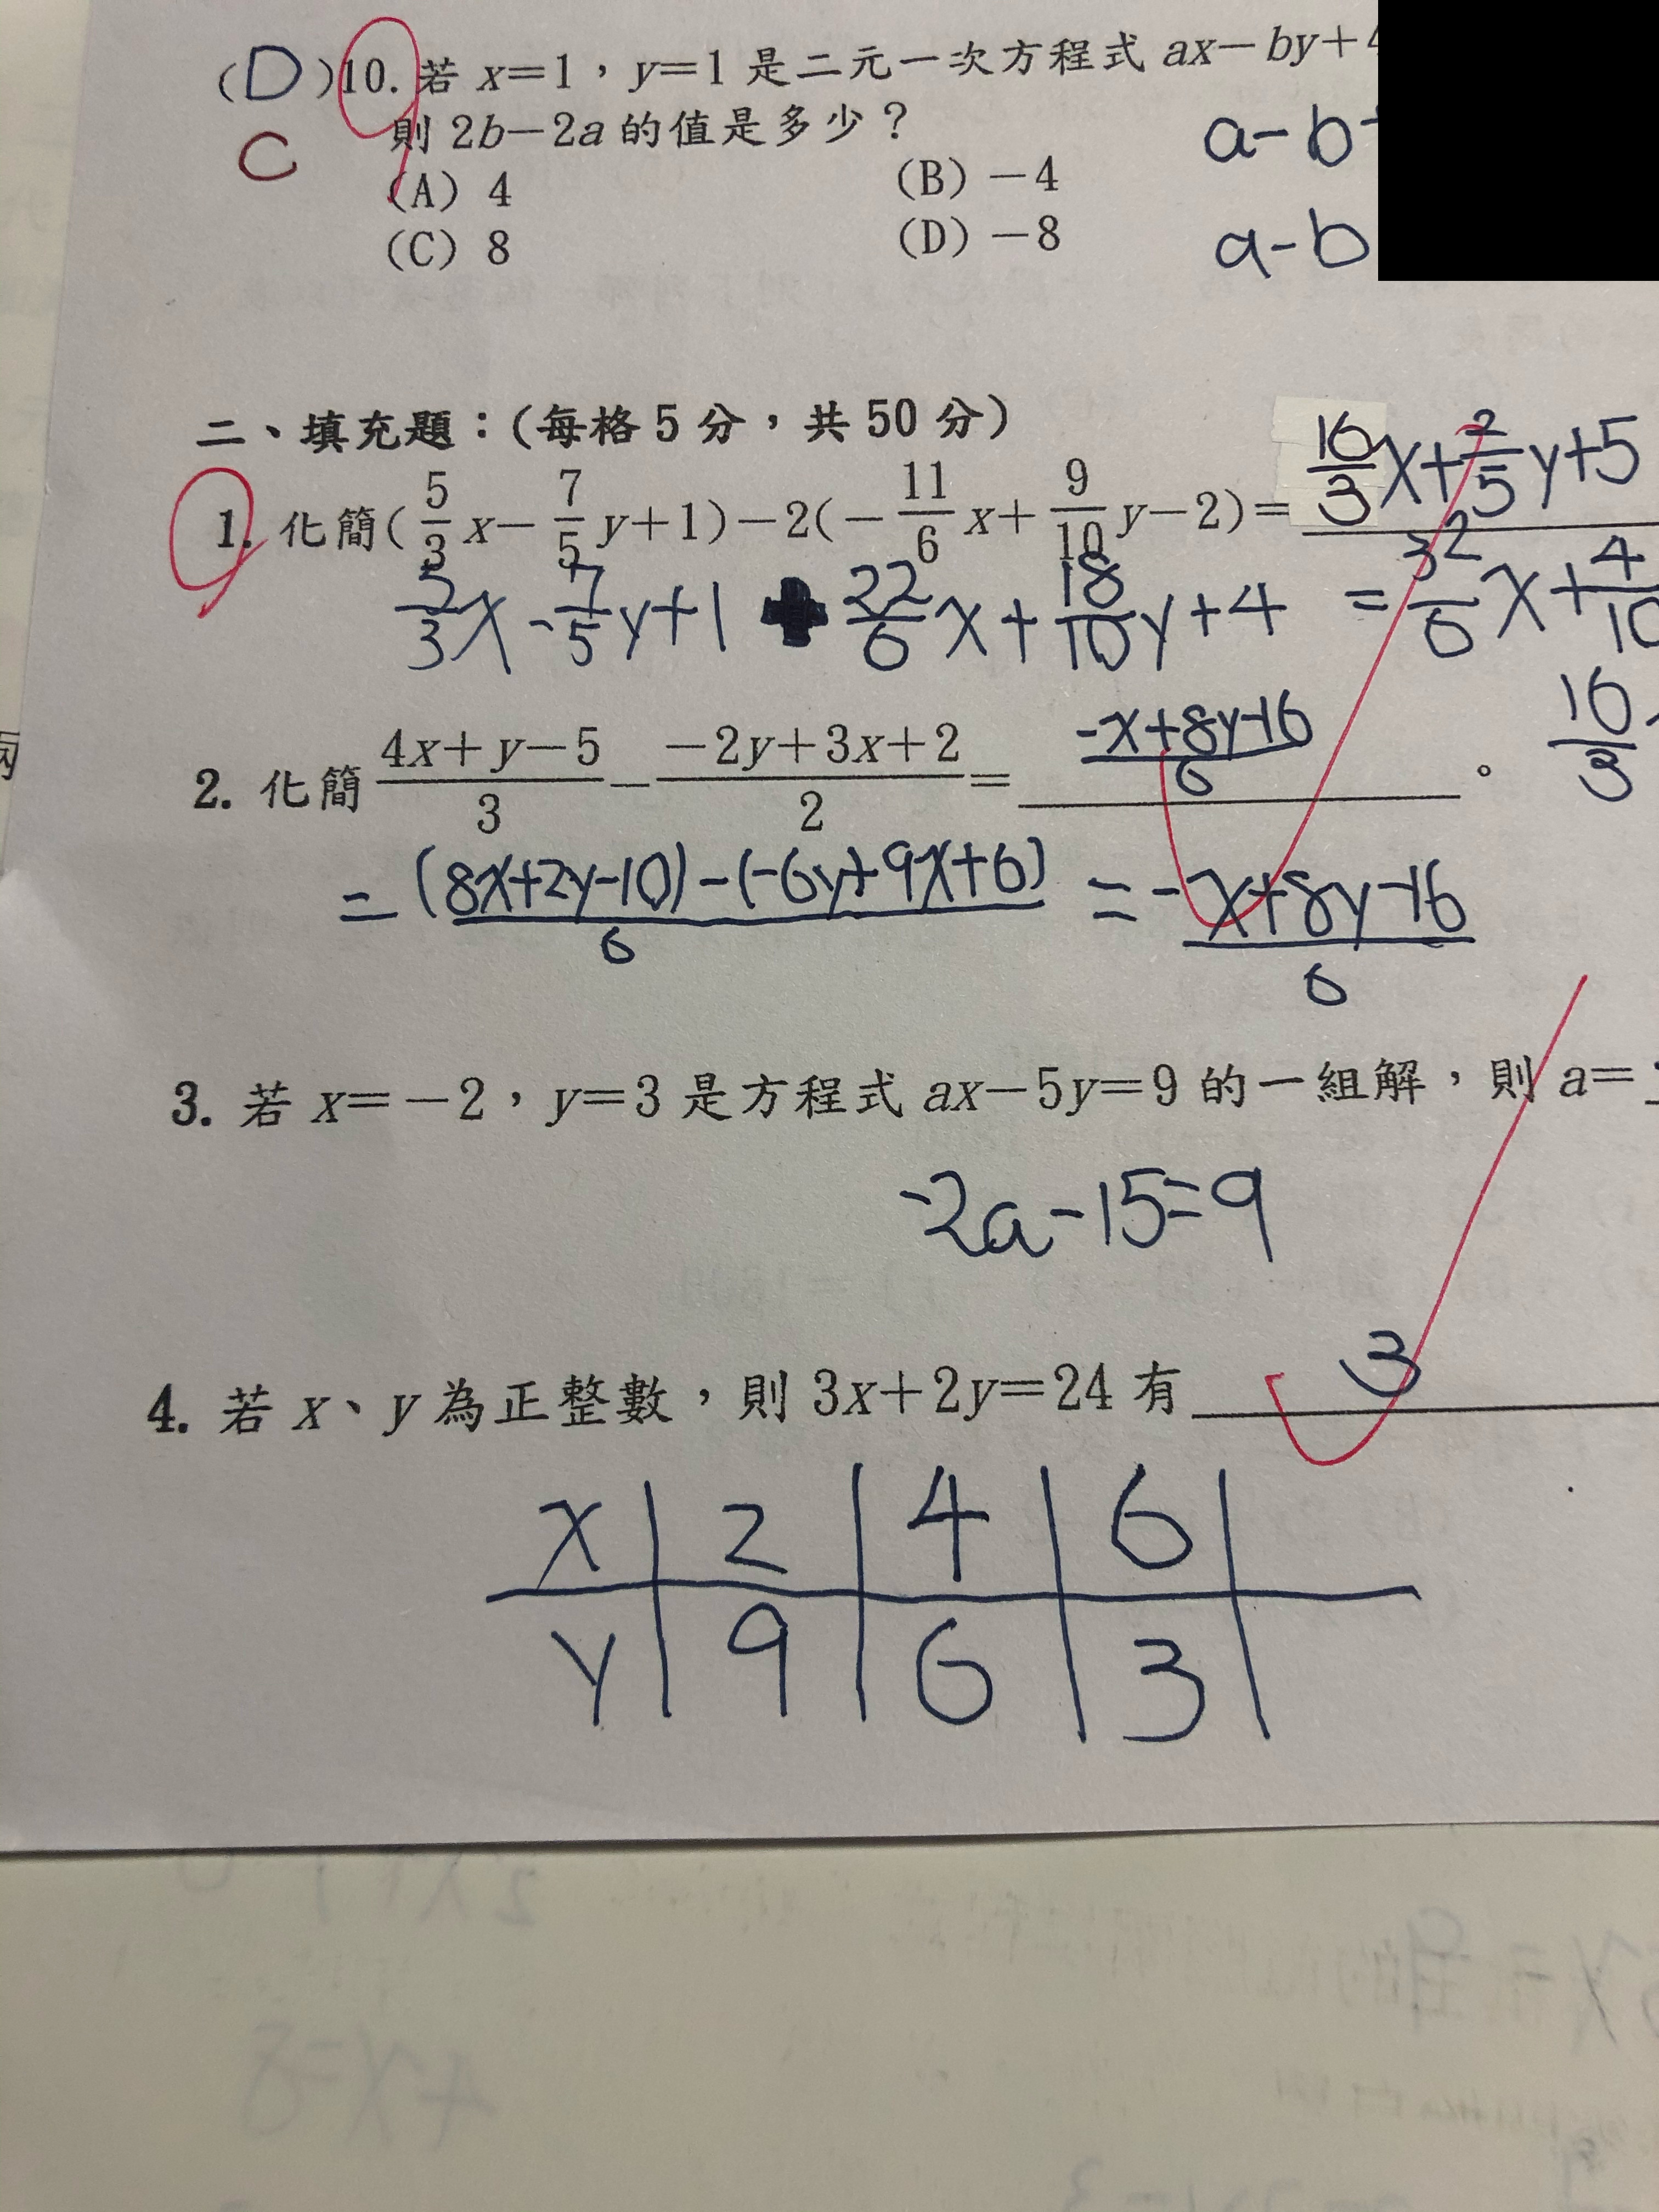 (D)10. 若 x=1，y=1 是二元一次方程式 ax－by＋4
C 則 2b－2a 的值是多少？
a－b
(A) 4 (B) －4
(C) 8 (D) －8
a－b
二、填充題：(每格 5 分，共 50 分)
1. 化簡(5/3 x－7/5 y＋1)－2(－11/6 x＋9/10 y－2)＝16/3 x＋2/5 y＋5
5/3 x－7/5 y＋1＋22/6 x＋18/10 y＋4 ＝32/6 x＋4/10
16/3
2. 化簡 (4x＋y－5)/3－(－2y＋3x＋2)/2＝(－x＋8y－16)/6。
＝((8x＋2y－10)－(－6y＋9x＋6))/6＝(－x＋8y－16)/6
3. 若 x＝－2，y＝3 是方程式 ax－5y＝9 的一組解，則 a＝
－2a－15＝9
4. 若 x、y 為正整數，則 3x＋2y＝24 有 3
x 2 4 6
y 9 6 3